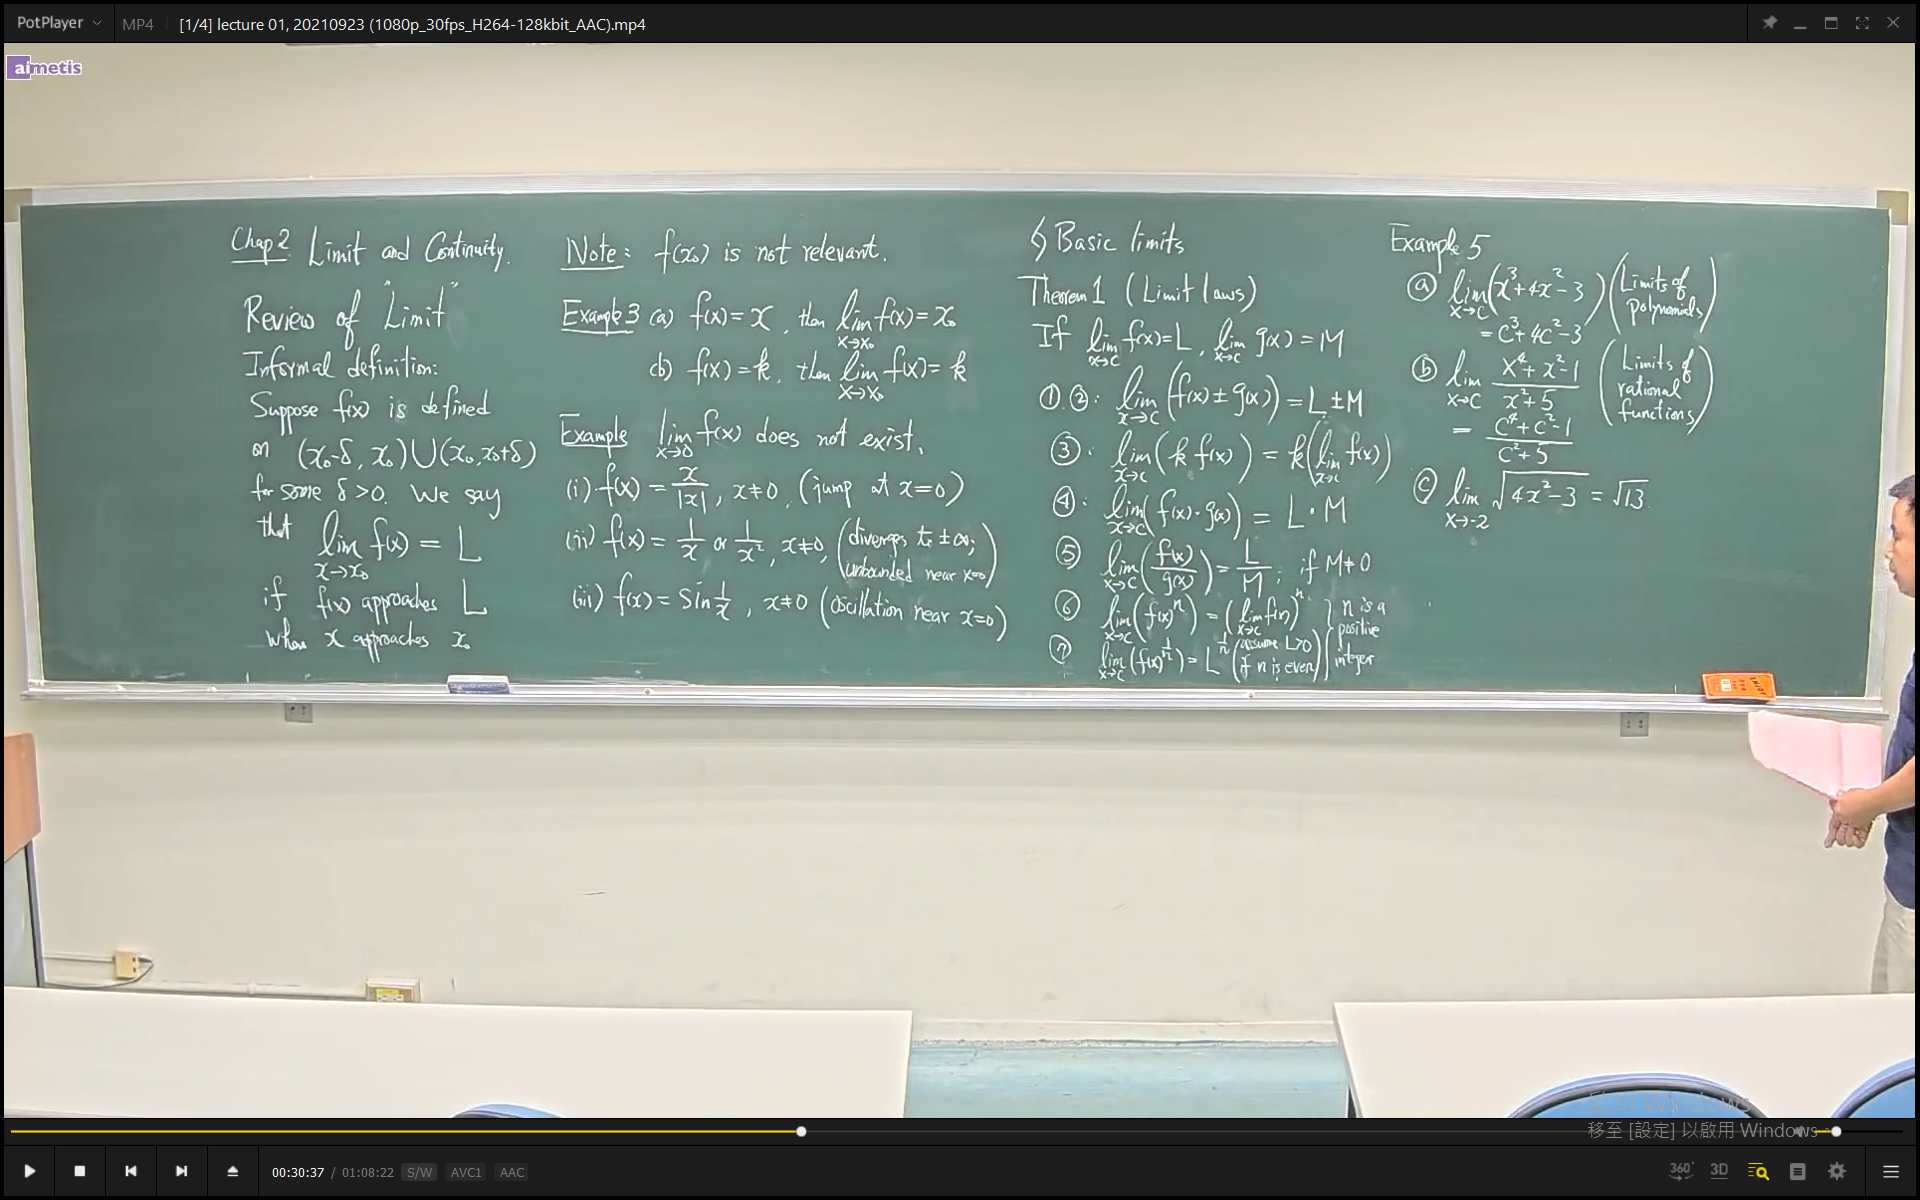 PotPlayer
MP4
[1/4] lecture 01, 20210923 (1080p_30fps_H264-128kbit_AAC).mp4
aimetis
Chap2 Limit and Continuity.
Review of "Limit"
Informal definition:
Suppose f(x) is defined
on (x₀-δ, x₀)∪(x₀, x₀+δ)
for some δ>0. We say
that
lim f(x) = L
x→x₀
if f(x) approaches L
when x approaches x₀
Note: f(x₀) is not relevant.
Example 3 (a) f(x)=x, then lim f(x)=x₀
x→x₀
(b) f(x)=k, then lim f(x)=k
x→x₀
Example lim f(x) does not exist.
x→0
(i) f(x) = x/|x|, x≠0, (jump at x=0)
(ii) f(x) = 1/x or 1/x², x≠0, (diverges to ±∞;
unbounded near x=0)
(iii) f(x) = sin 1/x, x≠0 (oscillation near x=0)
§ Basic limits
Theorem 1 (Limit laws)
If lim f(x)=L, lim g(x)=M
x→c x→c
①②: lim (f(x)±g(x)) = L±M
x→c
③: lim (k f(x)) = k(lim f(x))
x→c x→c
④: lim (f(x)·g(x)) = L·M
x→c
⑤ lim (f(x)/g(x)) = L/M, if M≠0
x→c
⑥ lim (f(x)ⁿ) = (lim f(x))ⁿ
x→c x→c
⑦ lim (f(x)^(1/n)) = L^(1/n) (assume L>0
x→c if n is even)
n is a
positive
integer
Example 5
ⓐ lim (x³+4x²-3) (Limits of
x→c polynomials)
= c³+4c²-3
ⓑ lim (x⁴+x²-1)/(x²+5) (Limits of
x→c rational
functions)
= (c⁴+c²-1)/(c²+5)
ⓒ lim √(4x²-3) = √13
x→-2
移至 [設定] 以啟用 Windows
00:30:37 / 01:08:22 S/W AVC1 AAC
360°
3D